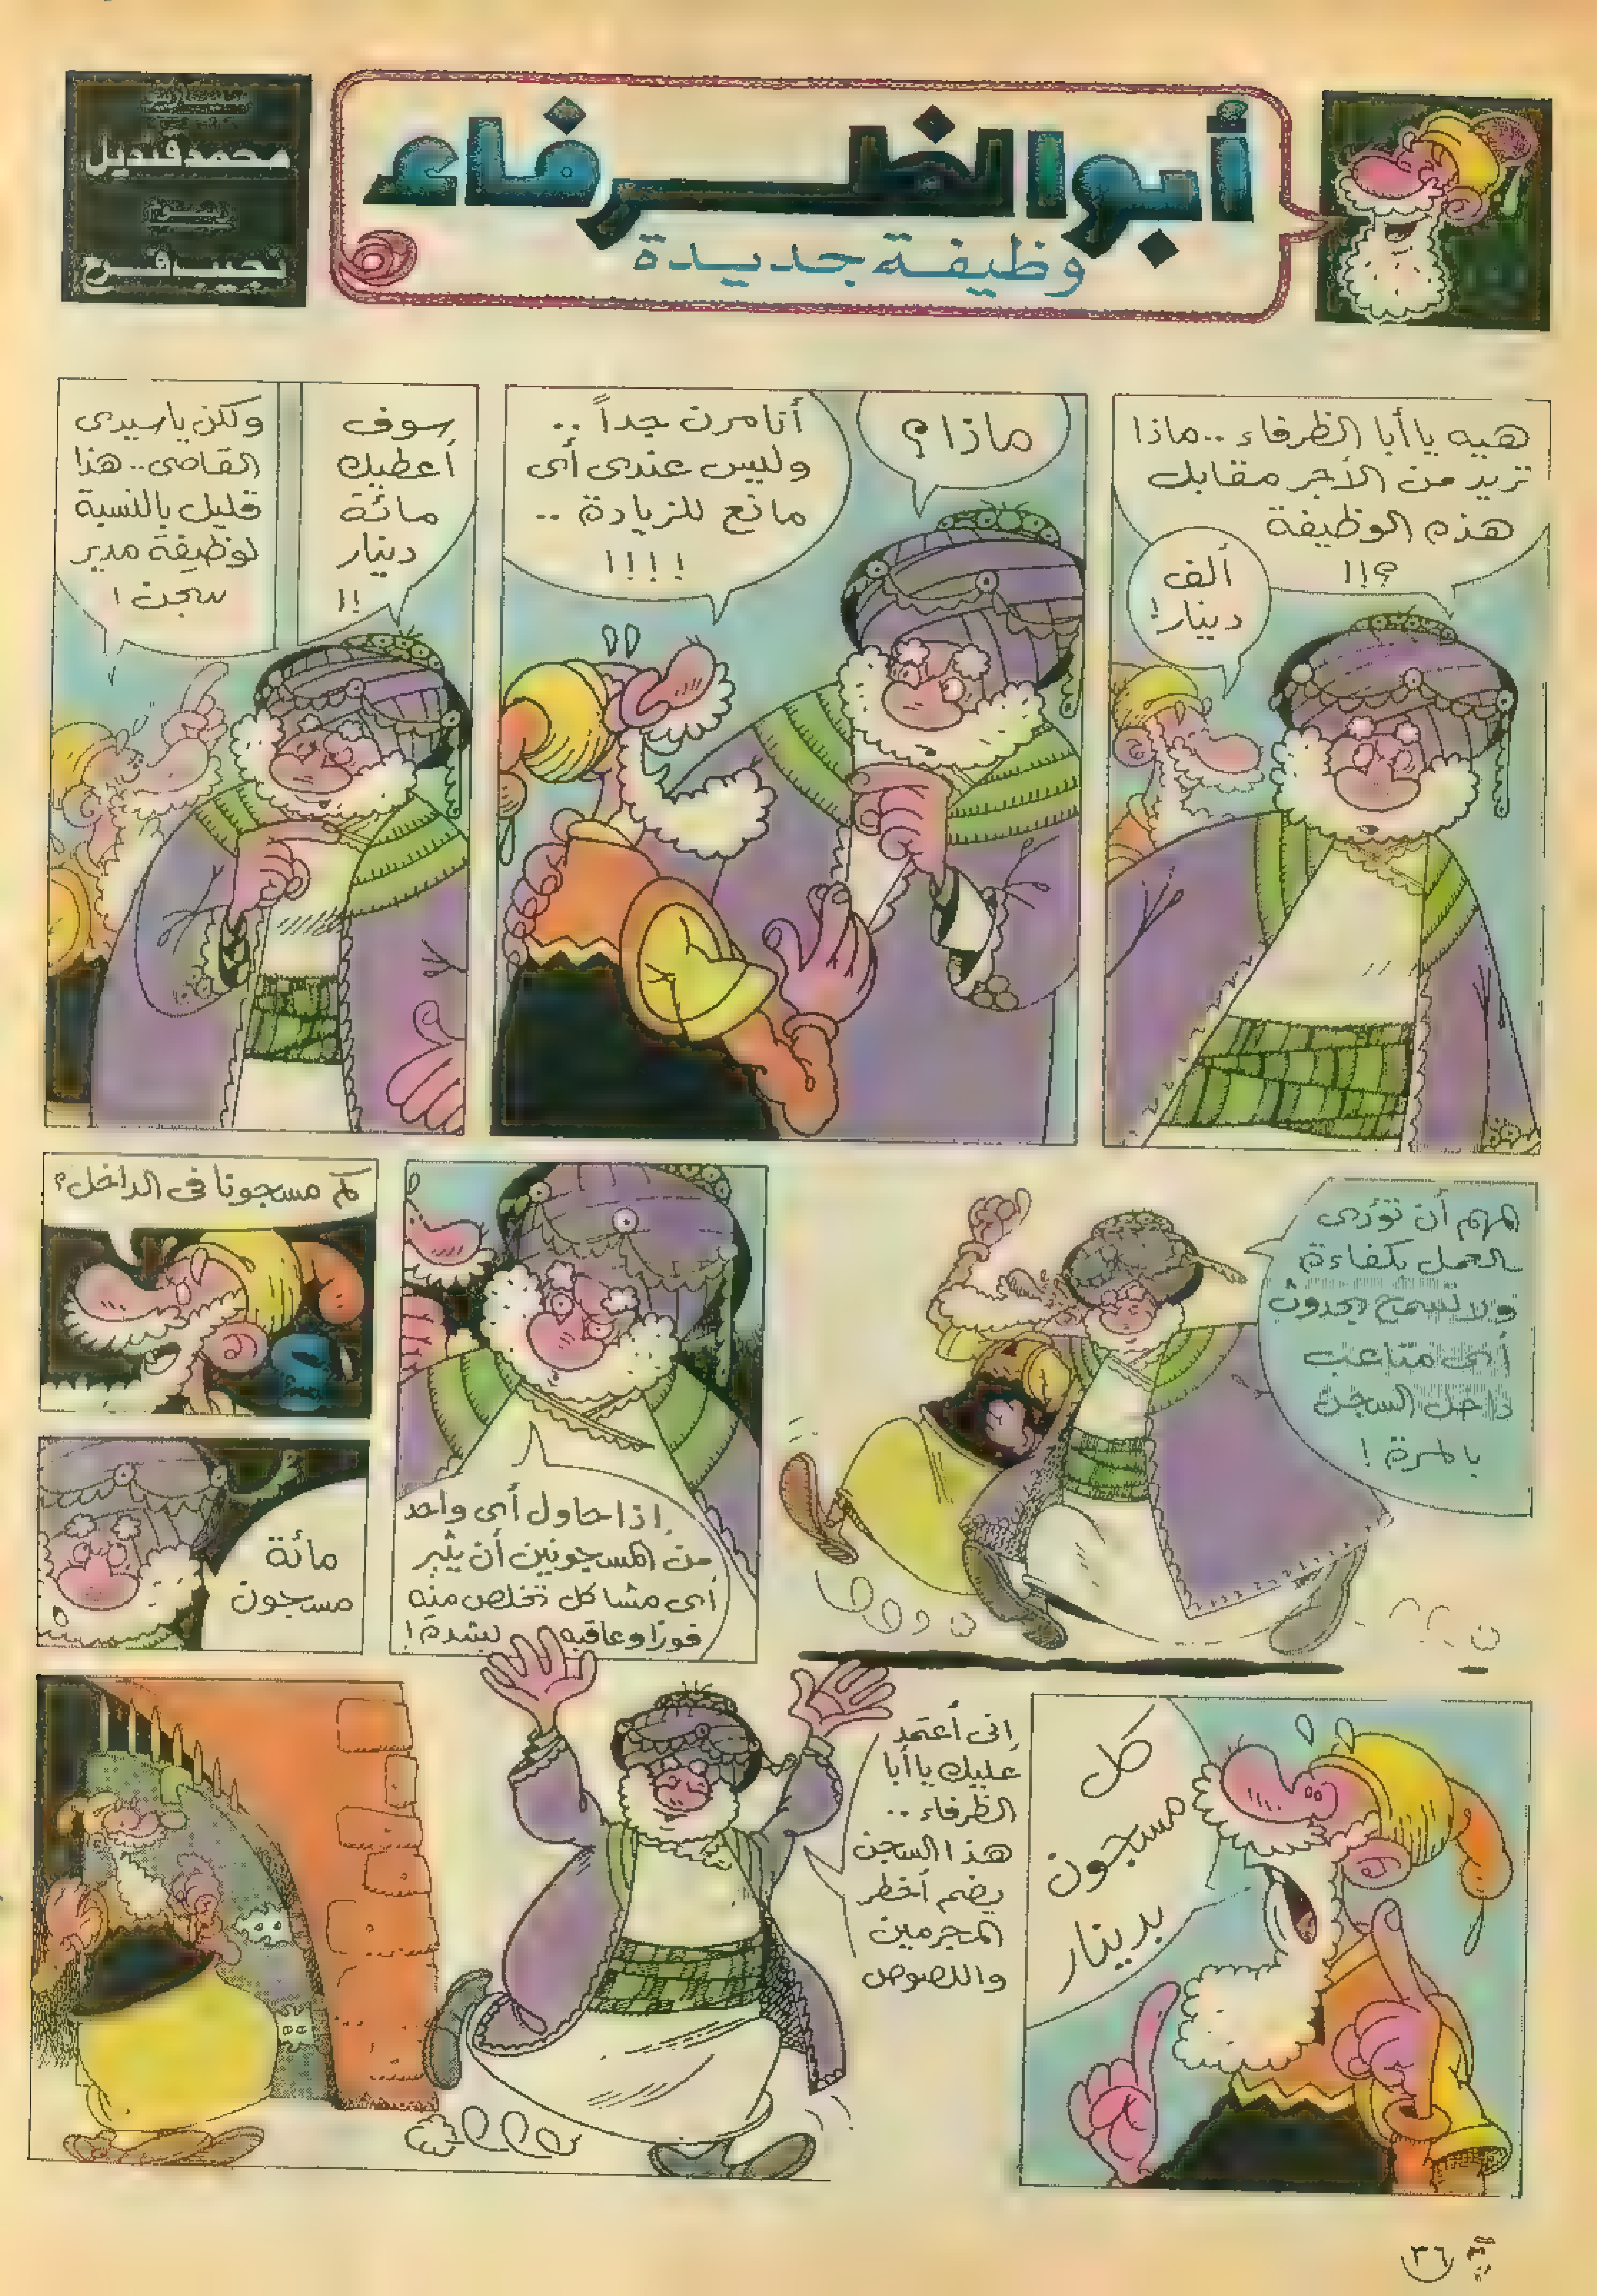 أبو الظرفاء
وظيفة جديدة
محمد قنديل
نجيب فرح
هيه يا أبا الظرفاء .. ماذا
تريد من الأجر مقابل
هذه الوظيفة
؟!!
ألف
دينار!
ماذا؟
أنا مرن جداً ..
وليس عندى أى
مانع للزيادة ..
!!!!
سوف
أعطيك
مائة
دينار
!!
ولكن يا سيدى
القاضى .. هذا
قليل بالنسبة
لوظيفة مدير
سجن!
المهم أن تؤدى
العمل بكفاءة
ولا تسمح بحدوث
أى متاعب
داخل السجن
بالمرة!
إذا حاول أى واحد
من المسجونين أن يثير
أى مشاكل تخلص منه
فورًا وعاقبه بشدة!
كم مسجونا فى الداخل؟
مائة
مسجون
كل
مسجون
بدينار
إنى أعتمد
عليك يا أبا
الظرفاء ..
هذا السجن
يضم أخطر
المجرمين
واللصوص
٣٦